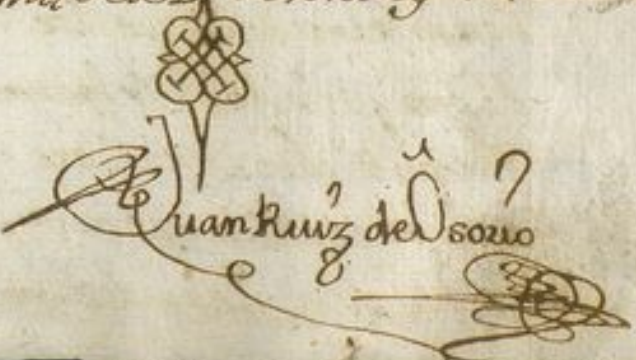 Juan Ruiz de Osorio